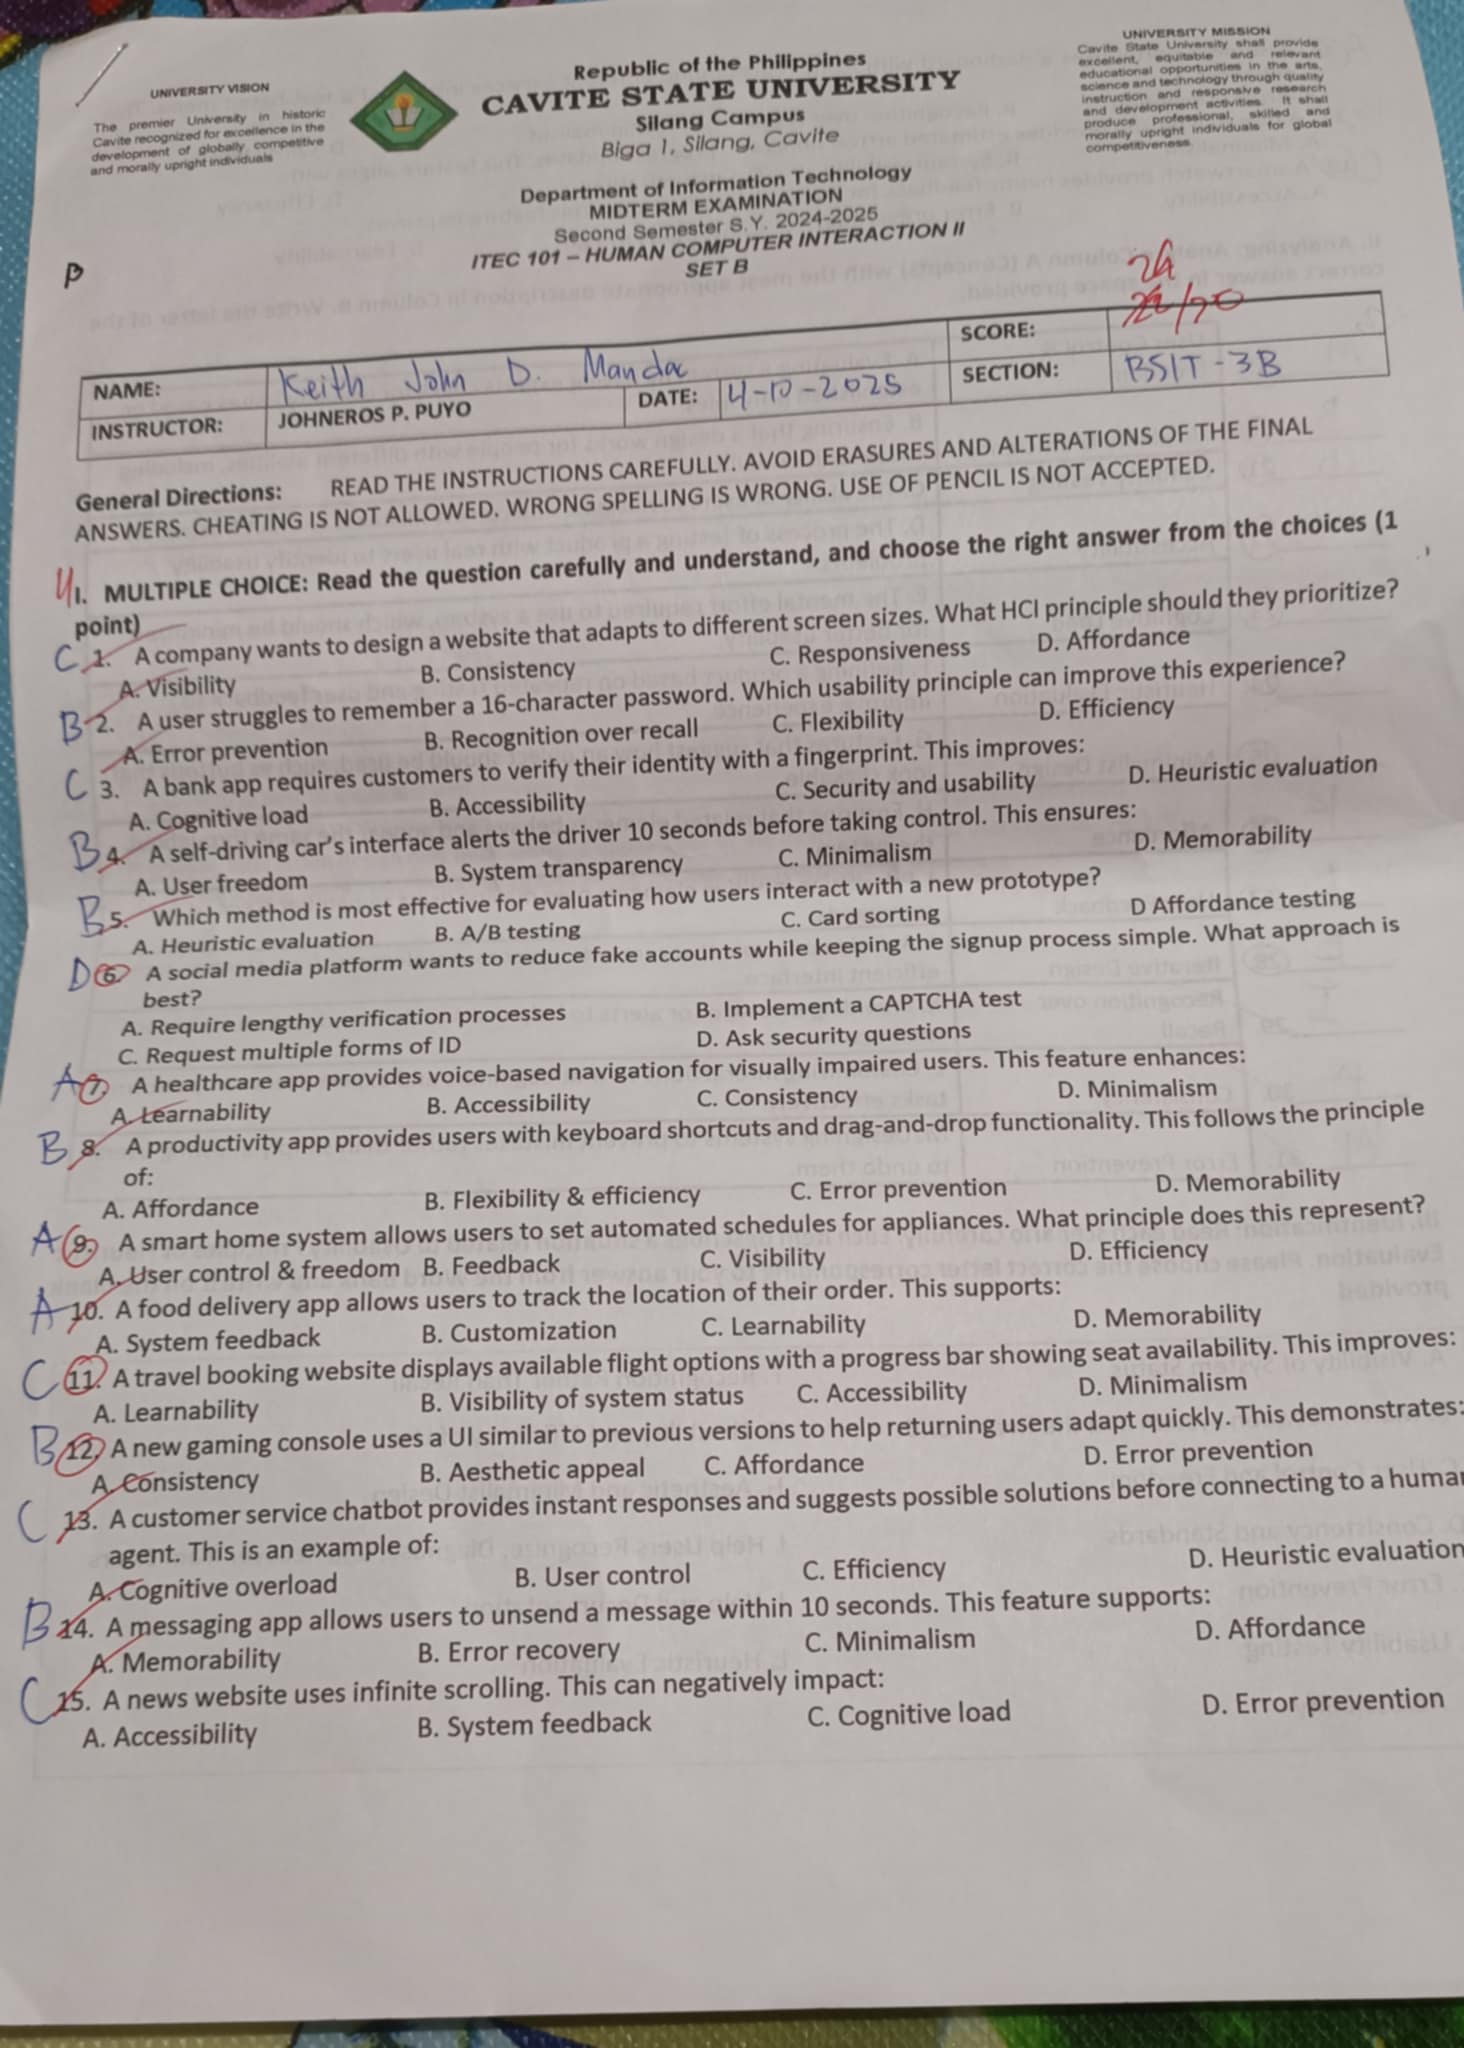 UNIVERSITY VISION
The premier University in historic
Cavite recognized for excellence in the
development of globally competitive
and morally upright individuals
Republic of the Philippines
CAVITE STATE UNIVERSITY
Silang Campus
Biga 1, Silang, Cavite
UNIVERSITY MISSION
Cavite State University shall provide
excellent, equitable and relevant
educational opportunities in the arts,
science and technology through quality
instruction and responsive research
and development activities. It shall
produce professional, skilled and
morally upright individuals for global
competitiveness.
Department of Information Technology
MIDTERM EXAMINATION
Second Semester S.Y. 2024-2025
ITEC 101 – HUMAN COMPUTER INTERACTION II
SET B
NAME: Keith John D. Manda SCORE: /70
INSTRUCTOR: JOHNEROS P. PUYO DATE: 4-10-2025 SECTION: BSIT-3B
General Directions: READ THE INSTRUCTIONS CAREFULLY. AVOID ERASURES AND ALTERATIONS OF THE FINAL
ANSWERS. CHEATING IS NOT ALLOWED. WRONG SPELLING IS WRONG. USE OF PENCIL IS NOT ACCEPTED.
I. MULTIPLE CHOICE: Read the question carefully and understand, and choose the right answer from the choices (1
point)
C 1. A company wants to design a website that adapts to different screen sizes. What HCI principle should they prioritize?
A. Visibility B. Consistency C. Responsiveness D. Affordance
B 2. A user struggles to remember a 16-character password. Which usability principle can improve this experience?
A. Error prevention B. Recognition over recall C. Flexibility D. Efficiency
C 3. A bank app requires customers to verify their identity with a fingerprint. This improves:
A. Cognitive load B. Accessibility C. Security and usability D. Heuristic evaluation
B 4. A self-driving car's interface alerts the driver 10 seconds before taking control. This ensures:
A. User freedom B. System transparency C. Minimalism D. Memorability
B 5. Which method is most effective for evaluating how users interact with a new prototype?
A. Heuristic evaluation B. A/B testing C. Card sorting D Affordance testing
D 6. A social media platform wants to reduce fake accounts while keeping the signup process simple. What approach is
best?
A. Require lengthy verification processes B. Implement a CAPTCHA test
C. Request multiple forms of ID D. Ask security questions
A 7. A healthcare app provides voice-based navigation for visually impaired users. This feature enhances:
A. Learnability B. Accessibility C. Consistency D. Minimalism
B 8. A productivity app provides users with keyboard shortcuts and drag-and-drop functionality. This follows the principle
of:
A. Affordance B. Flexibility & efficiency C. Error prevention D. Memorability
A 9. A smart home system allows users to set automated schedules for appliances. What principle does this represent?
A. User control & freedom B. Feedback C. Visibility D. Efficiency
A 10. A food delivery app allows users to track the location of their order. This supports:
A. System feedback B. Customization C. Learnability D. Memorability
C 11. A travel booking website displays available flight options with a progress bar showing seat availability. This improves:
A. Learnability B. Visibility of system status C. Accessibility D. Minimalism
B 12. A new gaming console uses a UI similar to previous versions to help returning users adapt quickly. This demonstrates:
A. Consistency B. Aesthetic appeal C. Affordance D. Error prevention
C 13. A customer service chatbot provides instant responses and suggests possible solutions before connecting to a human
agent. This is an example of:
A. Cognitive overload B. User control C. Efficiency D. Heuristic evaluation
B 14. A messaging app allows users to unsend a message within 10 seconds. This feature supports:
A. Memorability B. Error recovery C. Minimalism D. Affordance
C 15. A news website uses infinite scrolling. This can negatively impact:
A. Accessibility B. System feedback C. Cognitive load D. Error prevention